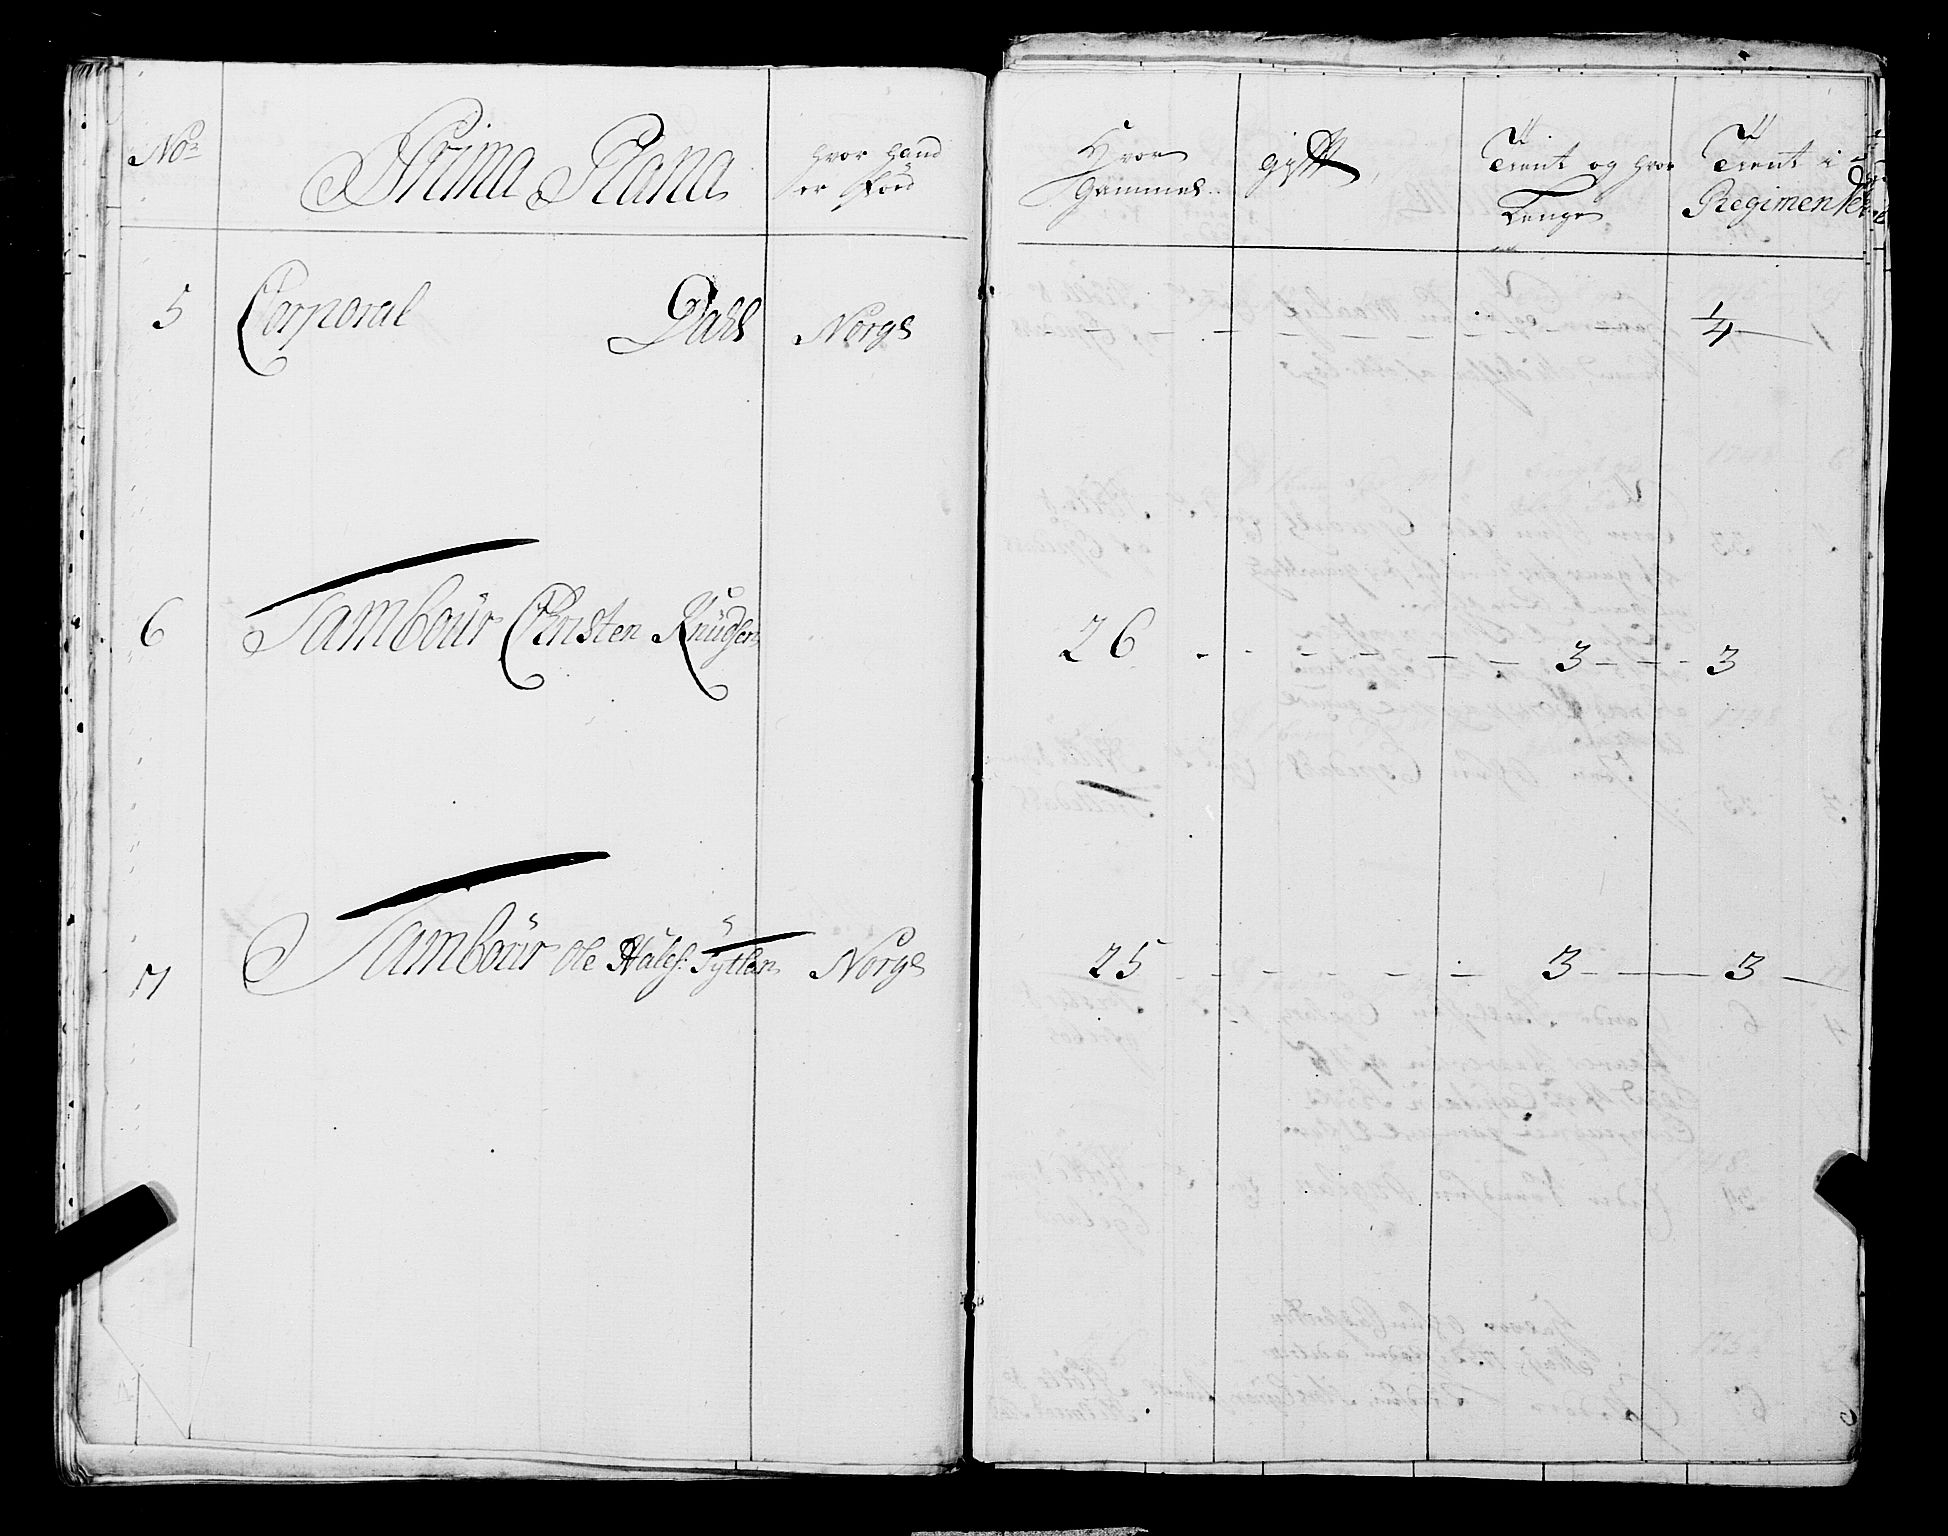 No
Prima Plana
hvor hand
er föed
Hvor
Gammel
gift
Tient og hvor
Lenge
Tient i
Regimentet
5 Corporal Dahl Norge 1/4
6 Tambour Christen Knudsen 26 3 3
7 Tambour Ole Halfs: Norge 25 3 3